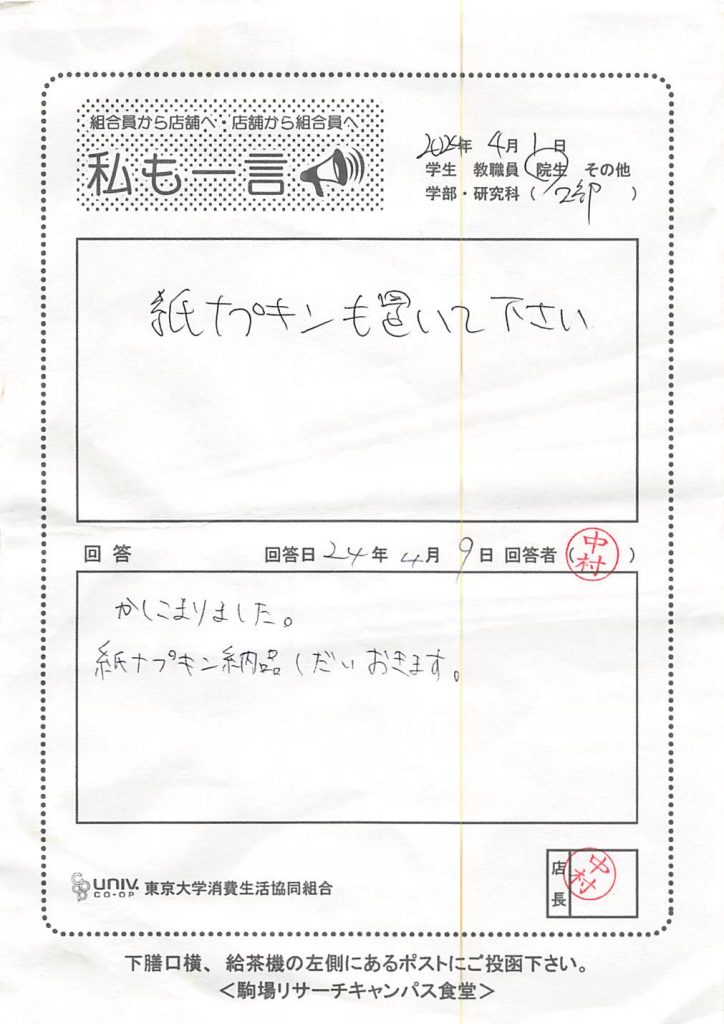 組合員から店舗へ・店舗から組合員へ
私も一言
2024年 4月 1日
学生 教職員 院生 その他
学部・研究科( 工部 )
紙ナプキンも置いて下さい
回答 回答日 24年 4月 9日 回答者(中村)
かしこまりました。
紙ナプキン納品しだいおきます。
店長 中村
UNIV. CO-OP 東京大学消費生活協同組合
下膳口横、給茶機の左側にあるポストにご投函下さい。
<駒場リサーチキャンパス食堂>